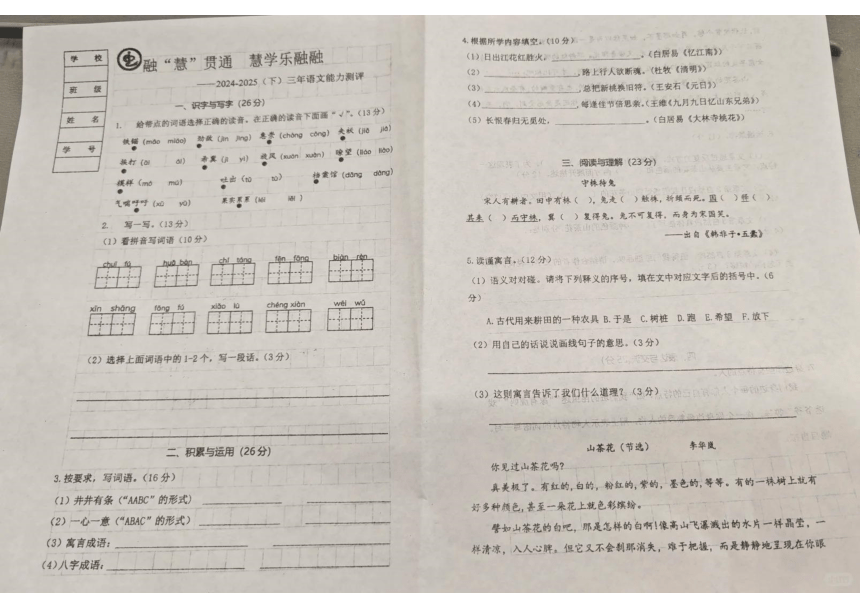 学 校
班 级
姓 名
学 号
融“慧”贯通 慧学乐融融
——2024-2025（下）三年语文能力测评
一、识字与写字（26分）
1. 给带点的词语选择正确的读音，在正确的读音下面画“√”。（13分）
铁锚（máo miáo） 劲敌（jìn jìng） 惠崇（chóng cóng） 夹袄（jiā jiá）
挨打（āi ái） 希冀（jì yì） 旋风（xuàn xuán） 瞭望（liào liáo）
模样（mó mú） 吐出（tǔ tù） 档案馆（dǎng dàng）
气嘘呼呼（xū yū） 果实累累（léi lěi）
2. 写一写。（13分）
（1）看拼音写词语（10分）
chuī fú huǒ bàn chí táng fēn fāng biàn rèn
xīn shǎng fāng fú xiǎo lù chéng xiàn wèi wǔ
（2）选择上面词语中的1-2个，写一段话。（3分）
二、积累与运用（26分）
3.按要求，写词语。（16分）
（1）井井有条（“AABC”的形式）
（2）一心一意（“ABAC”的形式）
（3）寓言成语：
（4）八字成语：
4.根据所学内容填空。（10分）
（1）日出江花红胜火，。（白居易《忆江南》）
（2），路上行人欲断魂。（杜牧《清明》）
（3），总把新桃换旧符。（王安石《元日》）
（4），每逢佳节倍思亲。（王维《九月九日忆山东兄弟》）
（5）长恨春归无觅处，。（白居易《大林寺桃花》）
三、阅读与理解（23分）
守株待兔
宋人有耕者。田中有株（ ），兔走（ ）触株，折颈而死。因（ ）释（ ）
其耒（ ）而守株，冀（ ）复得兔。兔不可复得，而身为宋国笑。
——出自《韩非子•五蠹》
5.读懂寓言。（12分）
（1）语义对对碰。请将下列释义的序号，填在文中对应文字后的括号中。（6
分）
A.古代用来耕田的一种农具 B.于是 C.树桩 D.跑 E.希望 F.放下
（2）用自己的话说说画线句子的意思。（3分）
（3）这则寓言告诉了我们什么道理？（3分）
山茶花（节选） 李华岚
你见过山茶花吗？
真美极了。有红的，白的，粉红的，紫的，墨色的，等等。有的一株树上就有
好多种颜色，甚至一朵花上就色彩缤纷。
譬如山茶花的白吧，那是怎样的白啊！像高山飞瀑溅出的水片一样晶莹，一
样清凉，入人心脾。但它又不会刹那消失，难于把握，而是静静地呈现在你眼